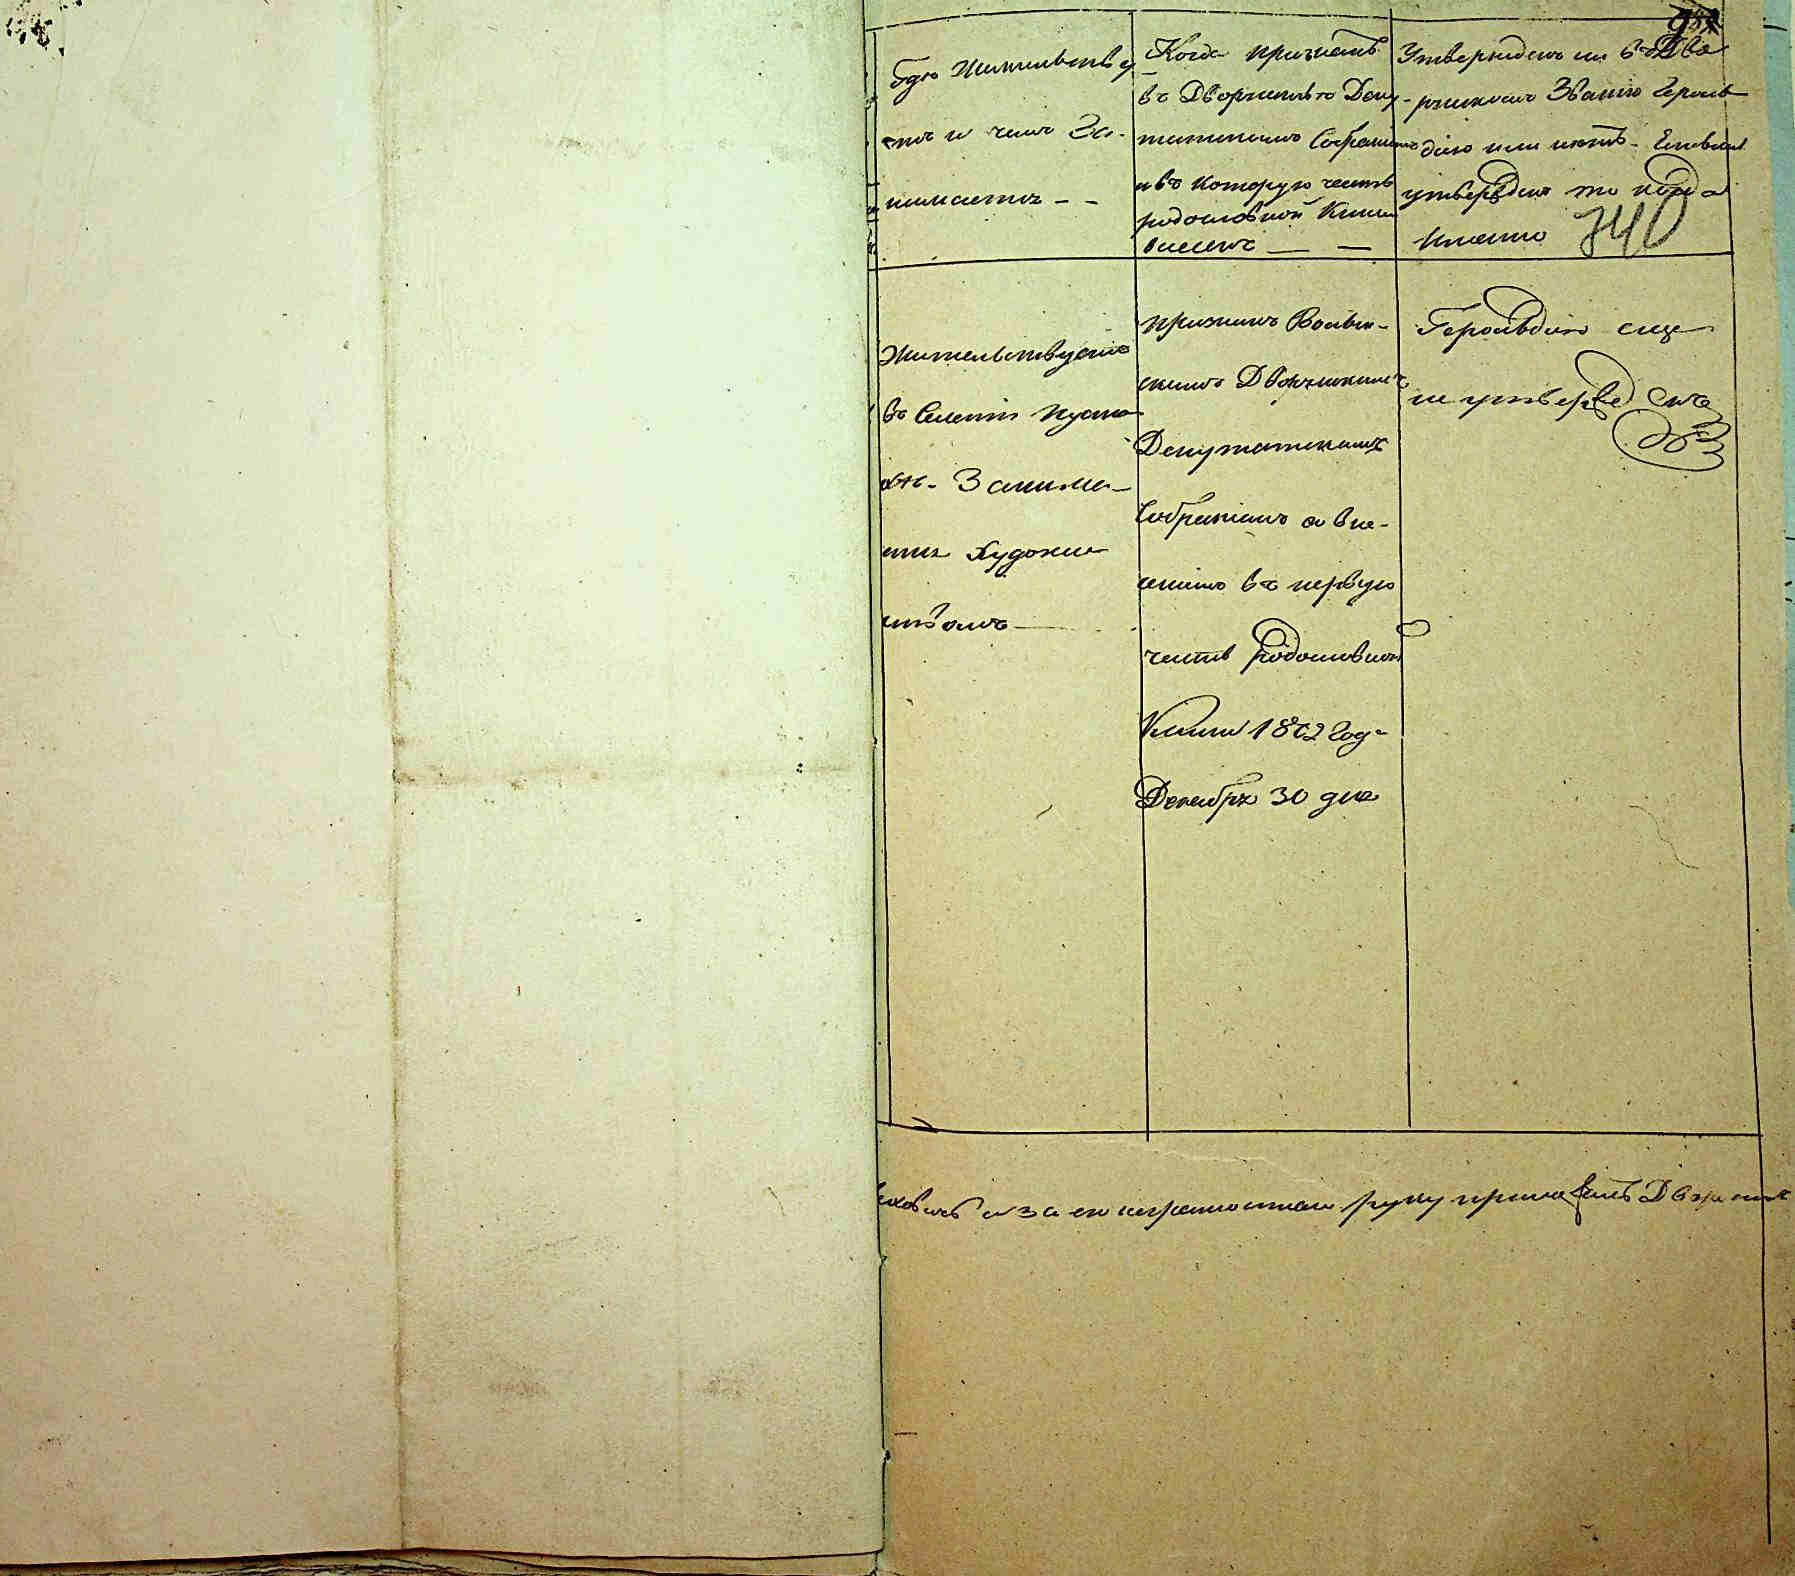 Где Жительству
етъ и чемъ За-
нимается – –
Когда признанъ
въ Дворянство Депу-
татскимъ Собраніемъ
и въ которую часть
родословной Книги
внесенъ – –
Утвержденъ ли въ Дво
рянскомъ Званіи Героль
діею или нетъ. Если
утвержденъ то когда
Именно
740
Жительствуетъ
въ Селеніи
Занима-
ется Художе
ствомъ
признанъ Волын-
скимъ Дворянскимъ
Депутатскимъ
Собраніемъ со вне-
сеніемъ въ первую
часть Родословной
Книги 1802 года
Декабря 30 дня
Герольдіею еще
не утвержденъ
и за его неграмотностью руку приложилъ Дворянинъ